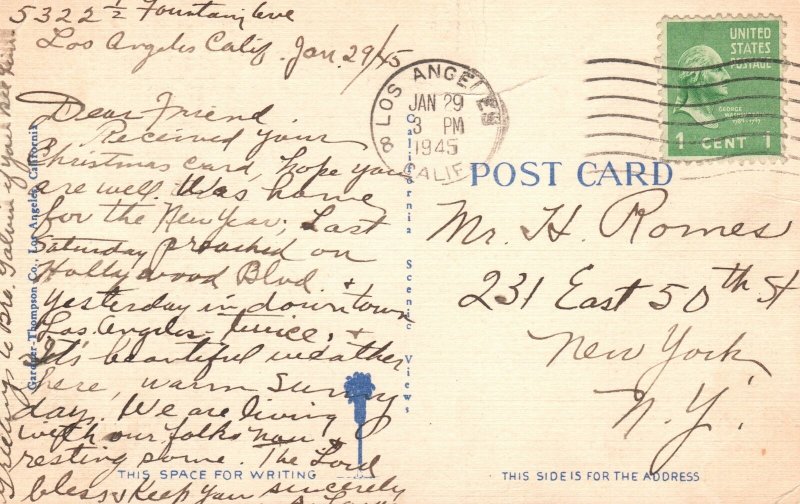 5322 1/2 Fountain Ave
Los Angeles Calif. Jan. 29/45
Dear Friend.
Received your
Christmas card, hope you
are well. Was home
for the New Year, Last
Saturday preached on
Hollywood Blvd. &
Yesterday in downtown
Los Angeles twice, &
It's beautiful weather
here, warm sunny
day. We are living
with our folks now &
resting some. The Lord
bless & keep you sincerely
Greetings to Bro. Galvin if you see him
Gardner-Thompson Co., Los Angeles, California
California Scenic Views
THIS SPACE FOR WRITING
LOS ANGELES
JAN 29
3 PM
1945
CALIF
8
UNITED
STATES
POSTAGE
GEORGE
WASHINGTON
1 CENT 1
POST CARD
Mr. H. Romes
231 East 50th St
New York
N.Y.
THIS SIDE IS FOR THE ADDRESS